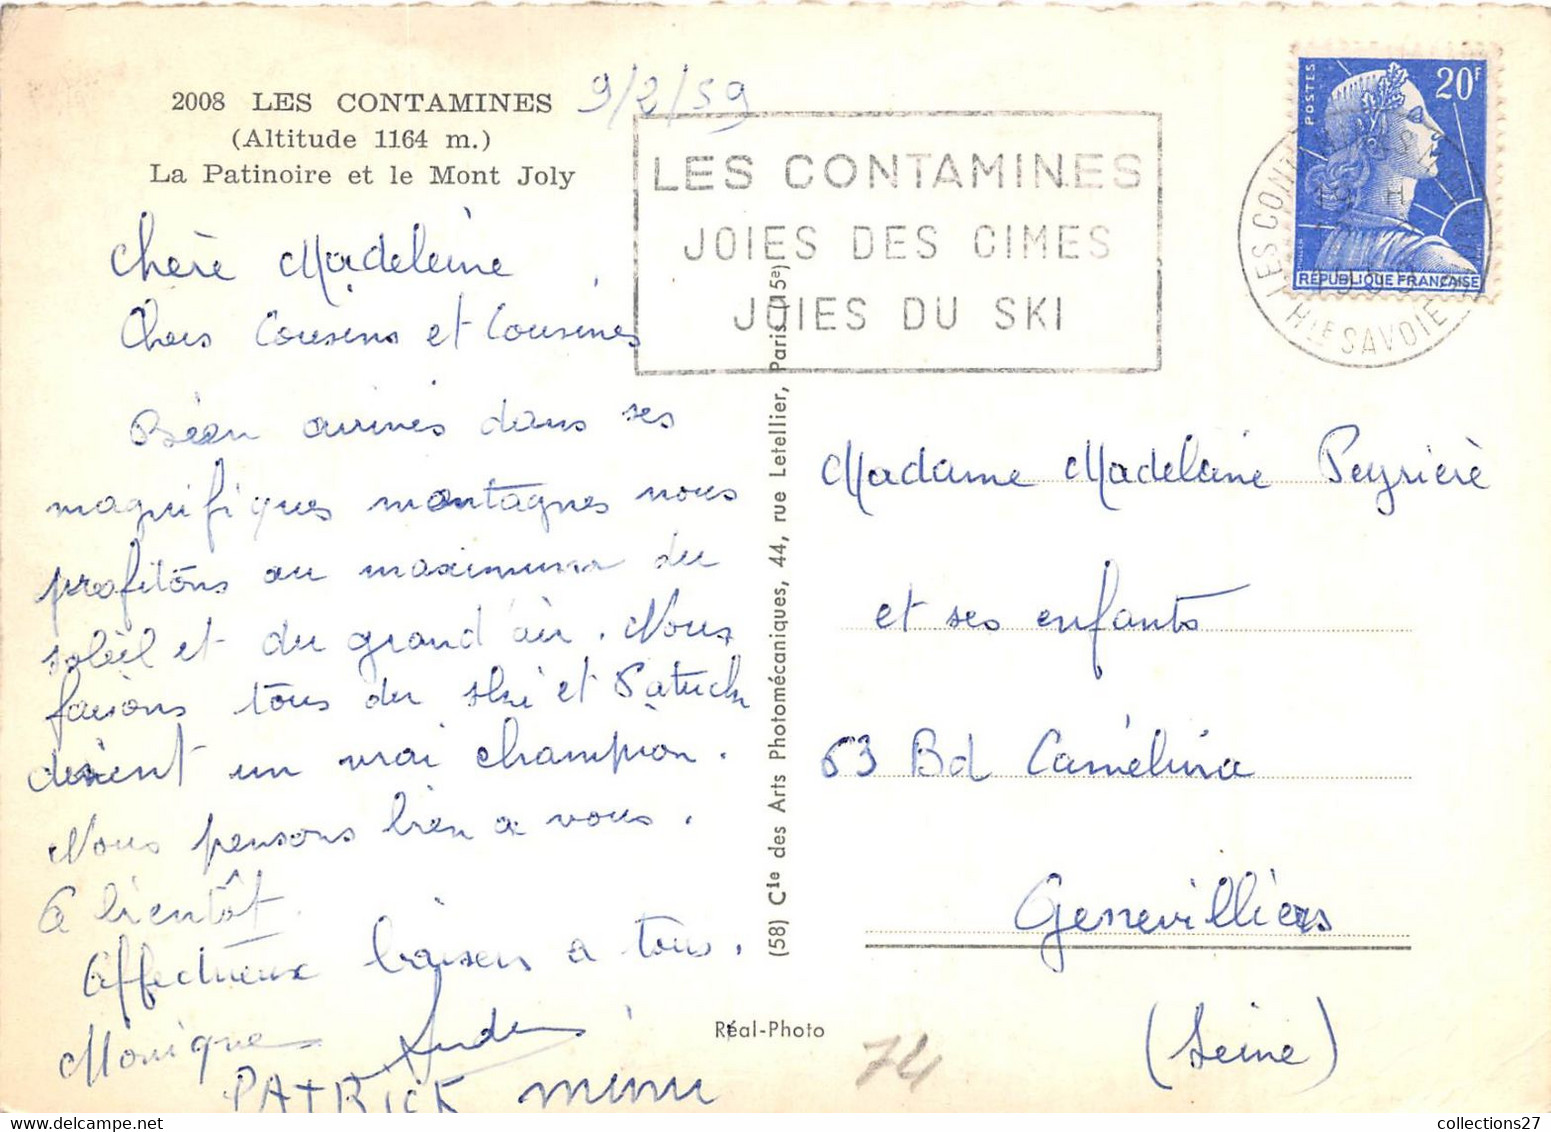 2008 LES CONTAMINES
(Altitude 1164 m.)
La Patinoire et le Mont Joly
9/2/59
LES CONTAMINES
JOIES DES CIMES
JOIES DU SKI
POSTES
20F
RÉPUBLIQUE FRANÇAISE
LES CONTAMINES
Hte SAVOIE
Chère Madeleine
Chers Cousins et Cousines
Bien arrivés dans ses
magnifiques montagnes nous
profitons au maximum du
soleil et du grand air. Nous
faisons tous du ski et Patrick
devient un vrai champion.
Nous pensons bien a vous.
A bientôt.
Affectueux baisers a tous.
Monique
PATRICK
(58) Cie des Arts Photomécaniques, 44, rue Letellier, Paris (15e)
Réal-Photo
Madame Madeleine Peyrière
et ses enfants
53 Bd Camélina
Genevilliers
(Seine)
74
collections27